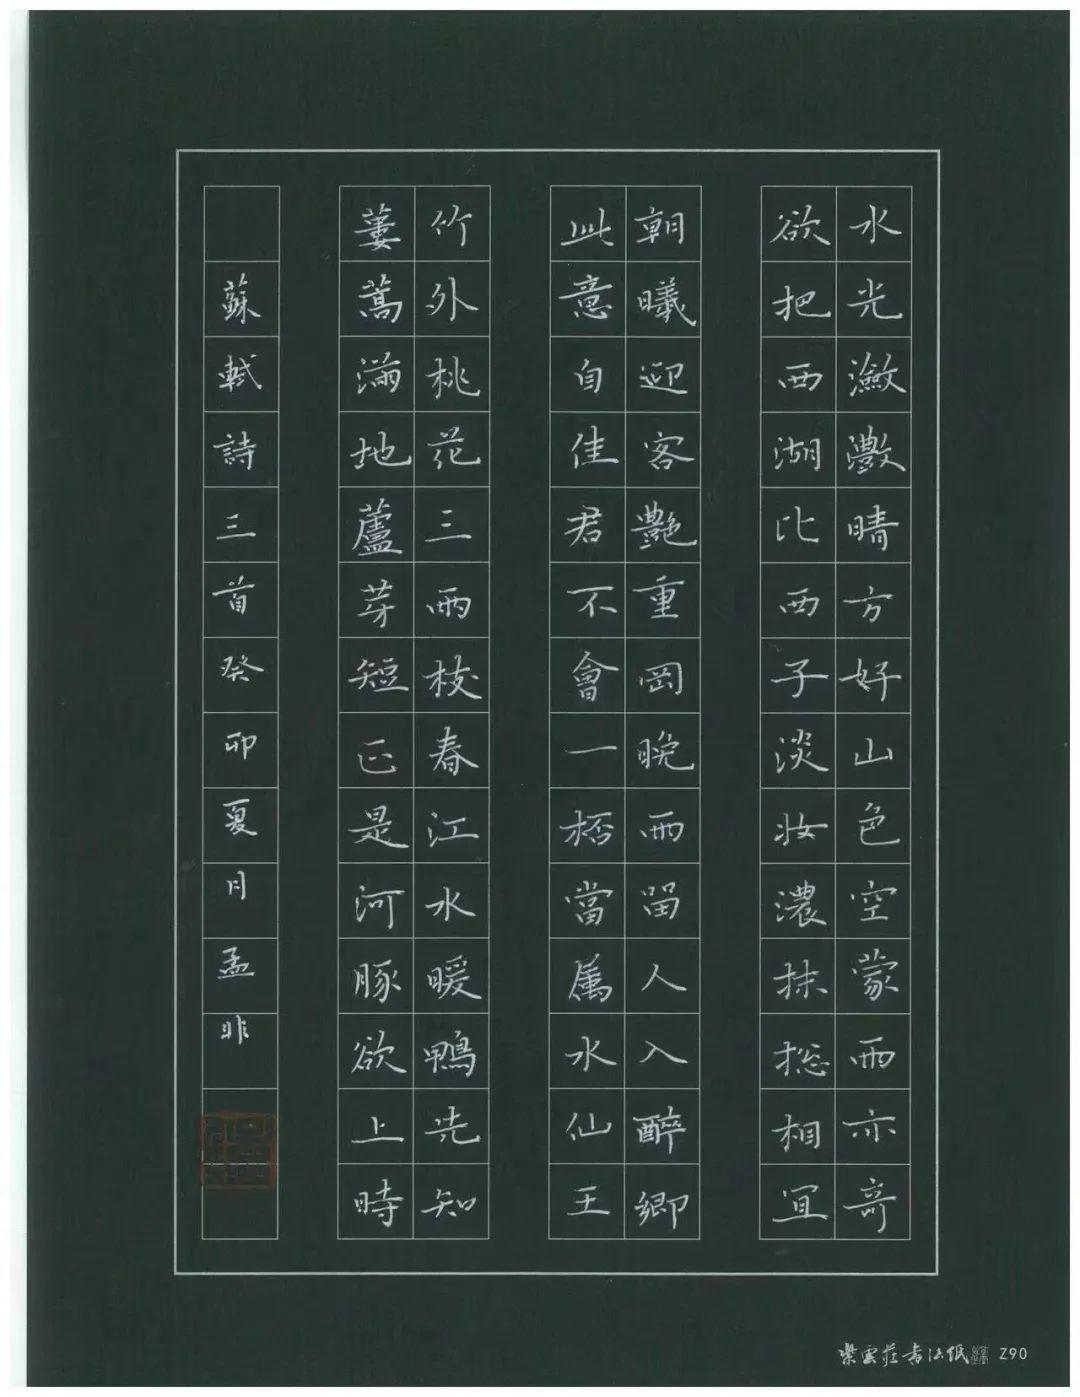 水光瀲灧晴方好山色空蒙雨亦奇
欲把西湖比西子淡妝濃抹總相宜
朝曦迎客艷重岡晚雨留人入醉鄉
此意自佳君不會一杯當屬水仙王
竹外桃花三兩枝春江水暖鴨先知
蔞蒿滿地蘆芽短正是河豚欲上時
蘇軾詩三首癸卯夏月孟非
紫雲莊書法紙 Z90